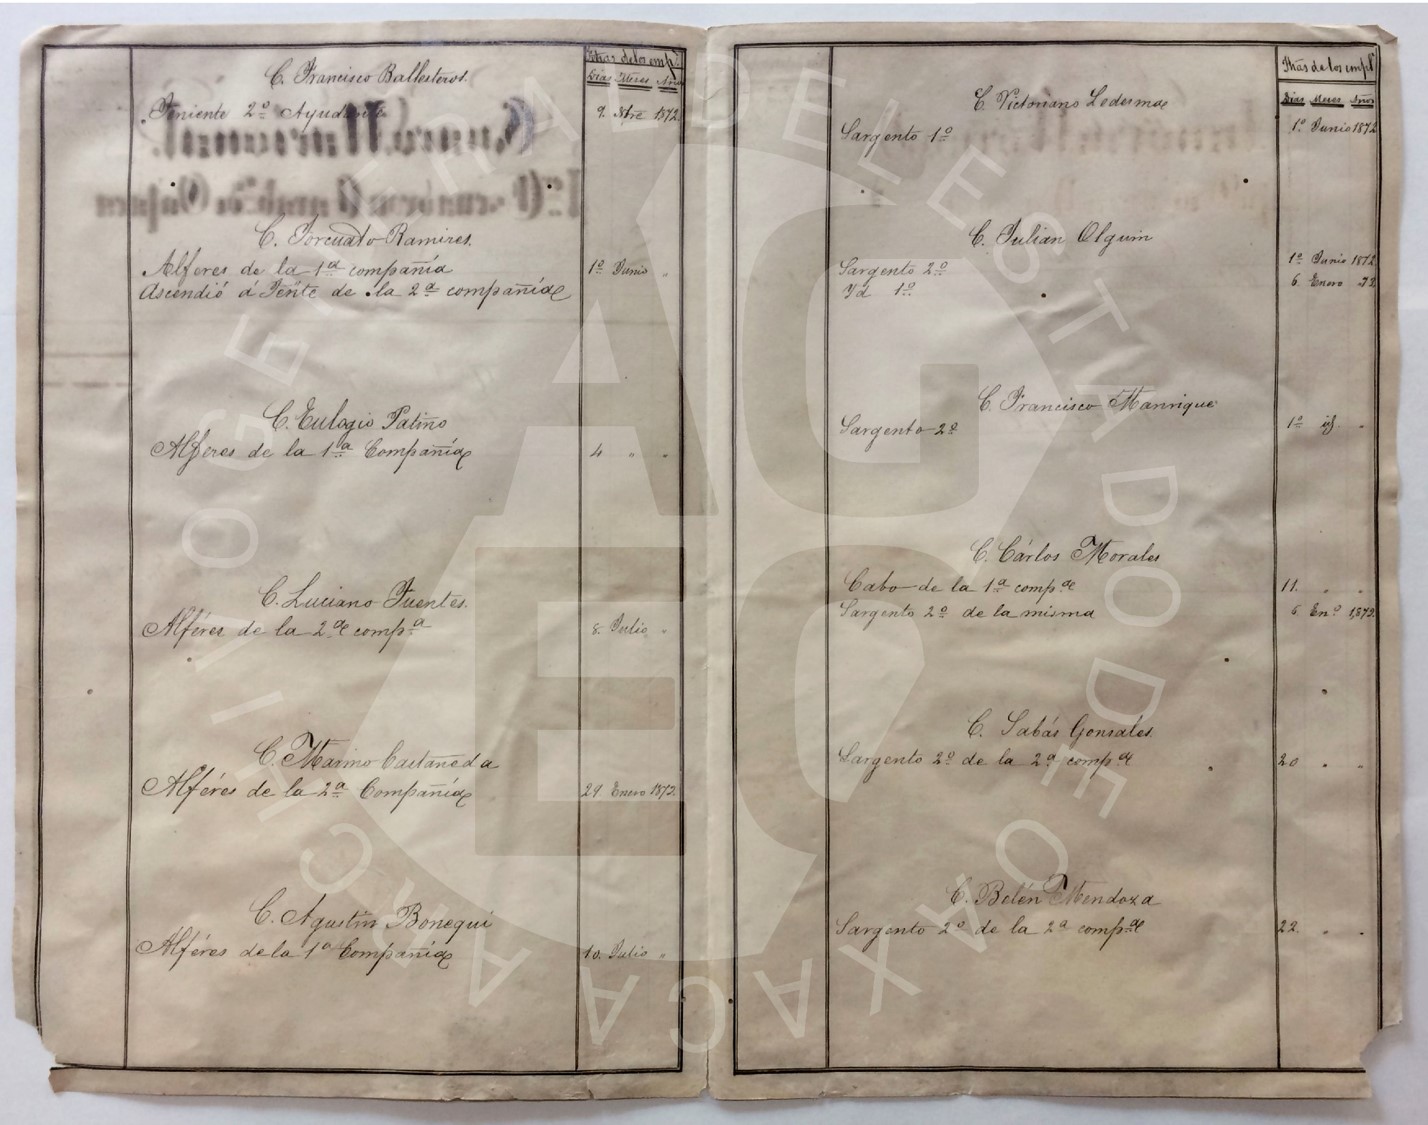 Fhas de los emp.s
Dias Meses Años
C. Francisco Ballesteros.
Teniente 2º Ayudante 9. Sbre 1872
C. Torcuato Ramires.
Alferes de la 1ª compañia 1º Junio „
Ascendió á Tente de la 2ª compañia
C. Eulogio Patiño
Alferes de la 1ª Compañia 4 „ „
C. Luciano Fuentes.
Alféres de la 2ª compª 8. Julio „
C. Marino Castañeda
Alféres de la 2ª Compañia 29 Enero 1872.
C. Agustin Bonequi
Alféres de la 1ª Compañia 10. Julio „
Fhas de los empl.s
Dias Meses Años
C. Victoriano Ledesma
Sargento 1º 1º Junio 1872
C. Julian Olguin
Sargento 2º 1º Junio 1872
Yd 1º 6 Enero 72
C. Francisco Manrique
Sargento 2º 1º id „
C. Cárlos Morales
Cabo de la 1ª compª 11. „ „
Sargento 2º de la misma 6 Enº 1,872.
C. Sabás Gonsales.
Sargento 2º de la 2ª compª 20 „ „
C. Belén Mendoza
Sargento 2º de la 2ª compª 22. „ „
ARCHIVO GENERAL DEL ESTADO DE OAXACA
AGEO